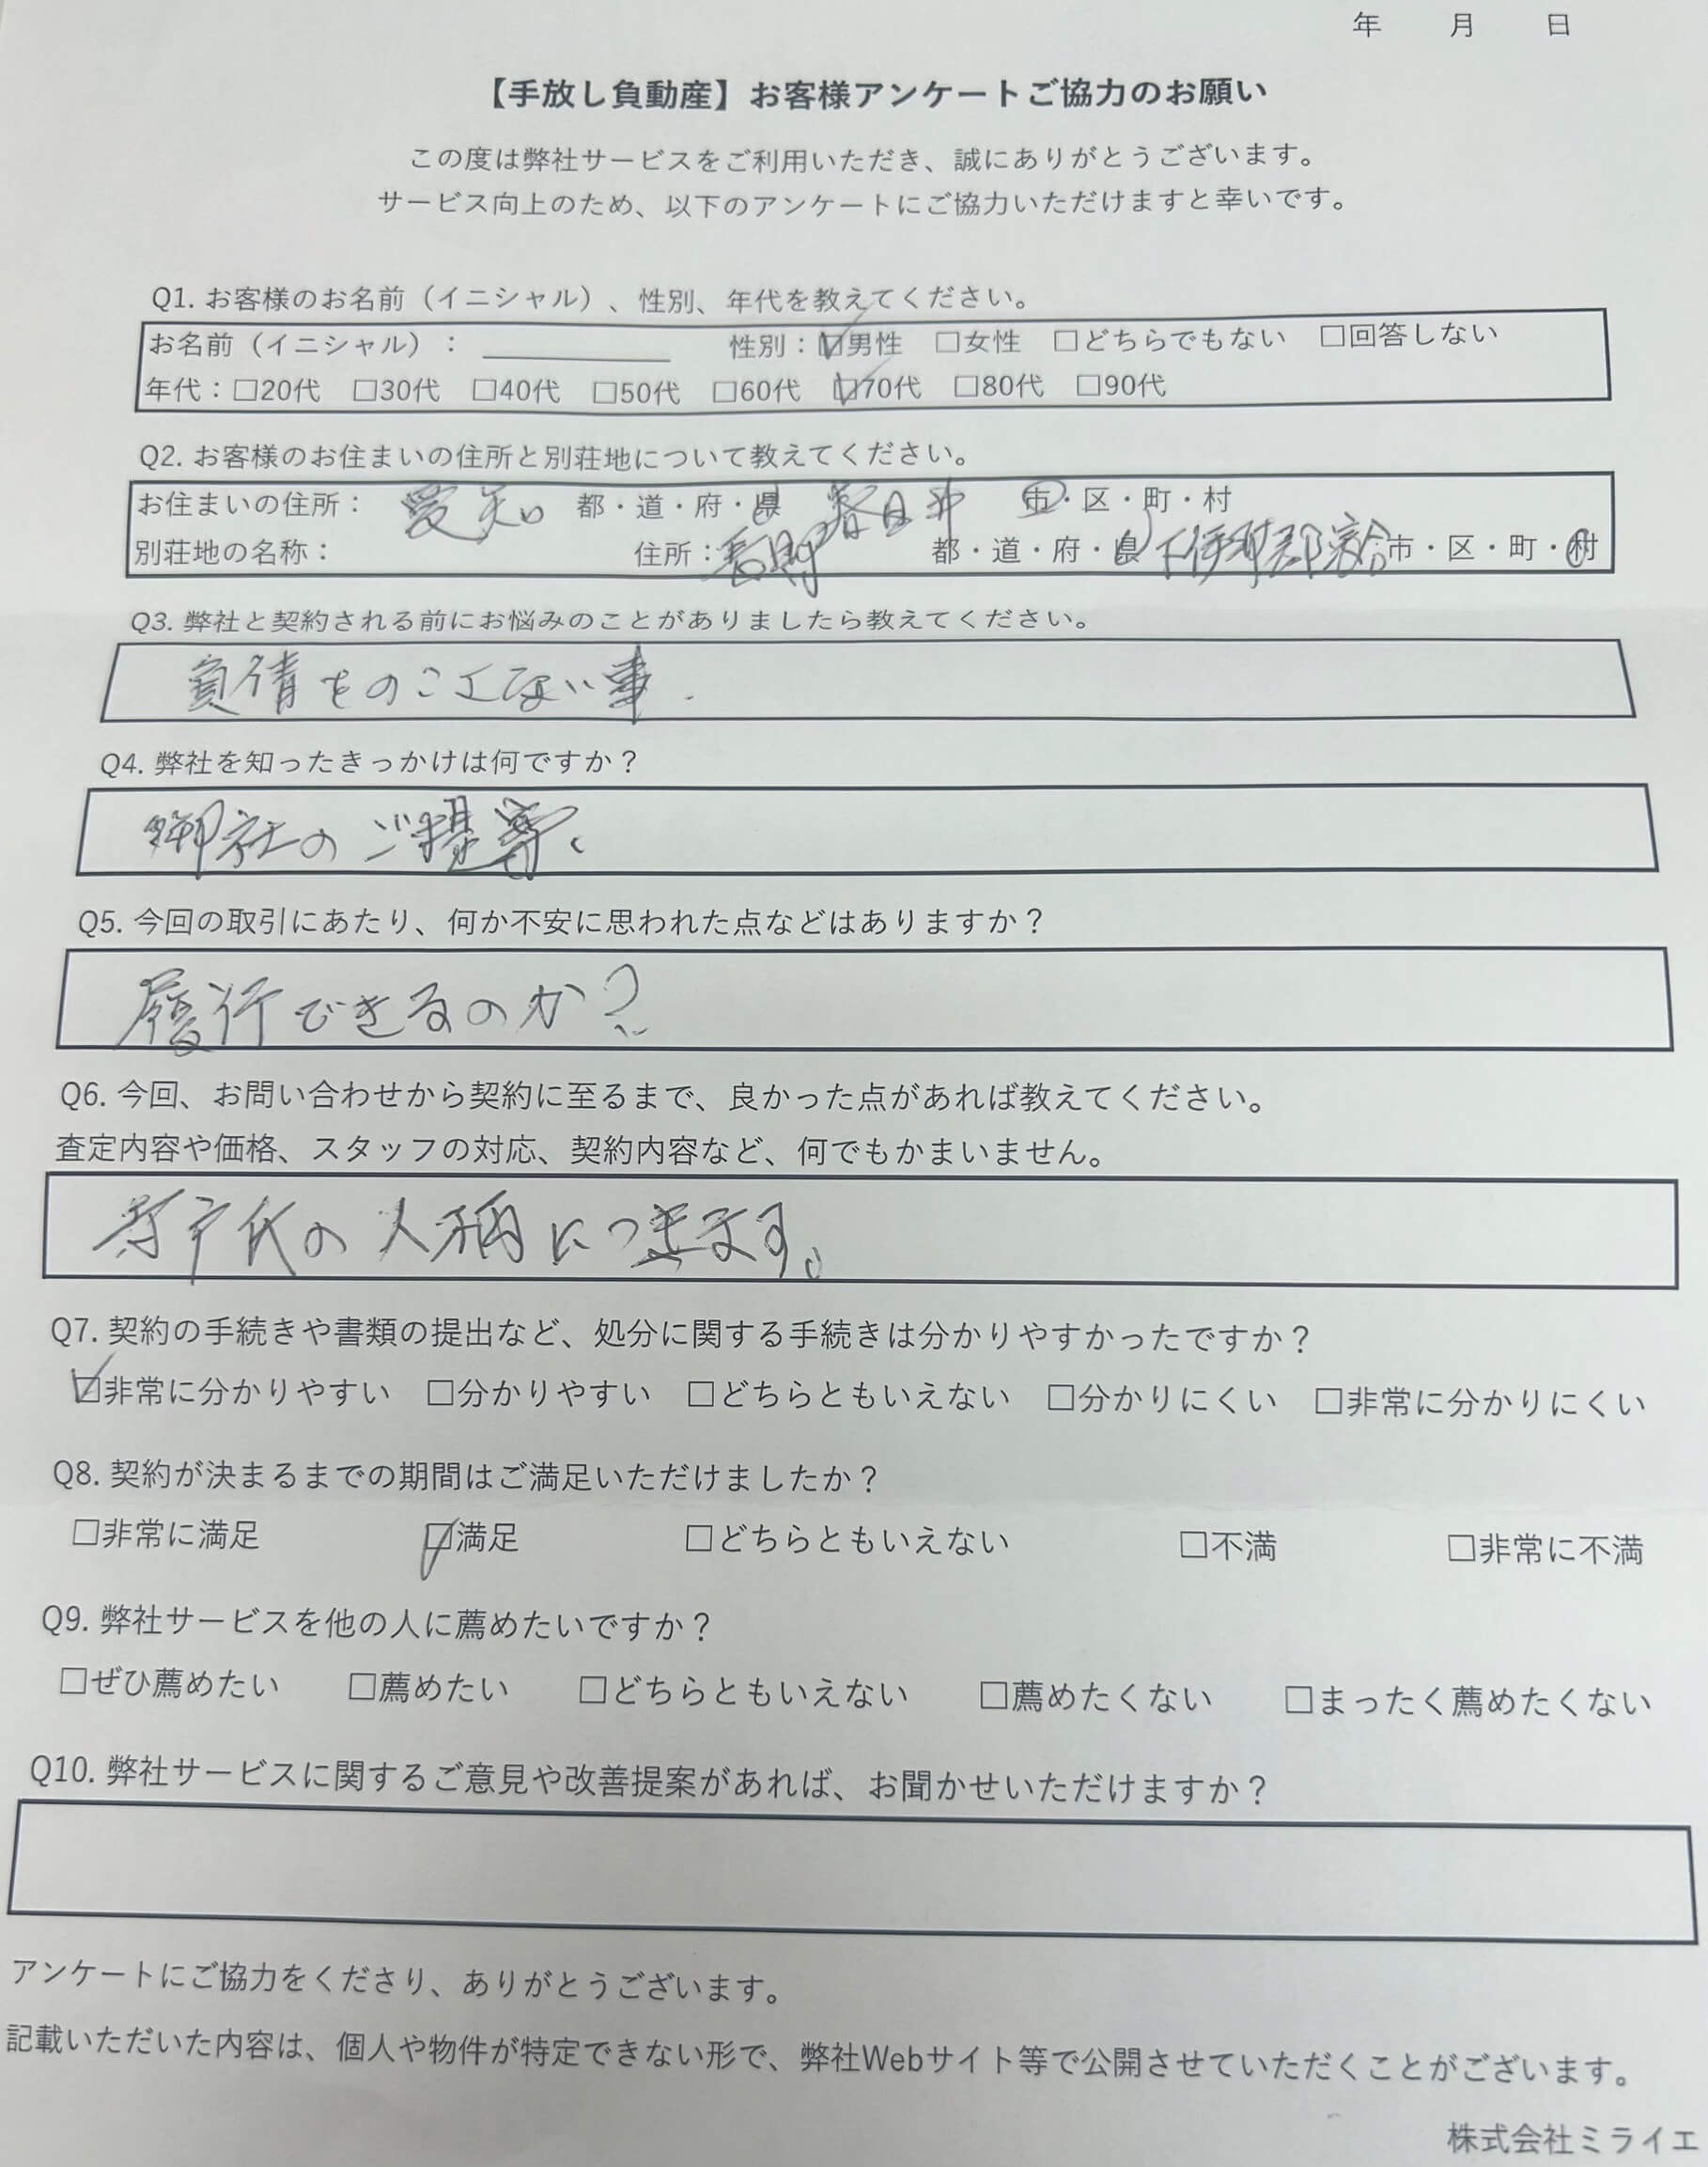 年　　月　　日
【手放し負動産】お客様アンケートご協力のお願い
この度は弊社サービスをご利用いただき、誠にありがとうございます。
サービス向上のため、以下のアンケートにご協力いただけますと幸いです。
Q1. お客様のお名前（イニシャル）、性別、年代を教えてください。
お名前（イニシャル）：　性別：☑男性　□女性　□どちらでもない　□回答しない
年代：□20代　□30代　□40代　□50代　□60代　☑70代　□80代　□90代
Q2. お客様のお住まいの住所と別荘地について教えてください。
お住まいの住所：　愛知　都・道・府・県　春日井　市・区・町・村
別荘地の名称：　住所：長野　都・道・府・県　下伊那郡　市・区・町・村
Q3. 弊社と契約される前にお悩みのことがありましたら教えてください。
負債をのこさない事.
Q4. 弊社を知ったきっかけは何ですか？
御社のご提案、
Q5. 今回の取引にあたり、何か不安に思われた点などはありますか？
履行できるのか？
Q6. 今回、お問い合わせから契約に至るまで、良かった点があれば教えてください。
査定内容や価格、スタッフの対応、契約内容など、何でもかまいません。
氏の人柄につきます。
Q7. 契約の手続きや書類の提出など、処分に関する手続きは分かりやすかったですか？
☑非常に分かりやすい　□分かりやすい　□どちらともいえない　□分かりにくい　□非常に分かりにくい
Q8. 契約が決まるまでの期間はご満足いただけましたか？
□非常に満足　☑満足　□どちらともいえない　□不満　□非常に不満
Q9. 弊社サービスを他の人に薦めたいですか？
□ぜひ薦めたい　□薦めたい　□どちらともいえない　□薦めたくない　□まったく薦めたくない
Q10. 弊社サービスに関するご意見や改善提案があれば、お聞かせいただけますか？
アンケートにご協力をくださり、ありがとうございます。
記載いただいた内容は、個人や物件が特定できない形で、弊社Webサイト等で公開させていただくことがございます。
株式会社ミライエ